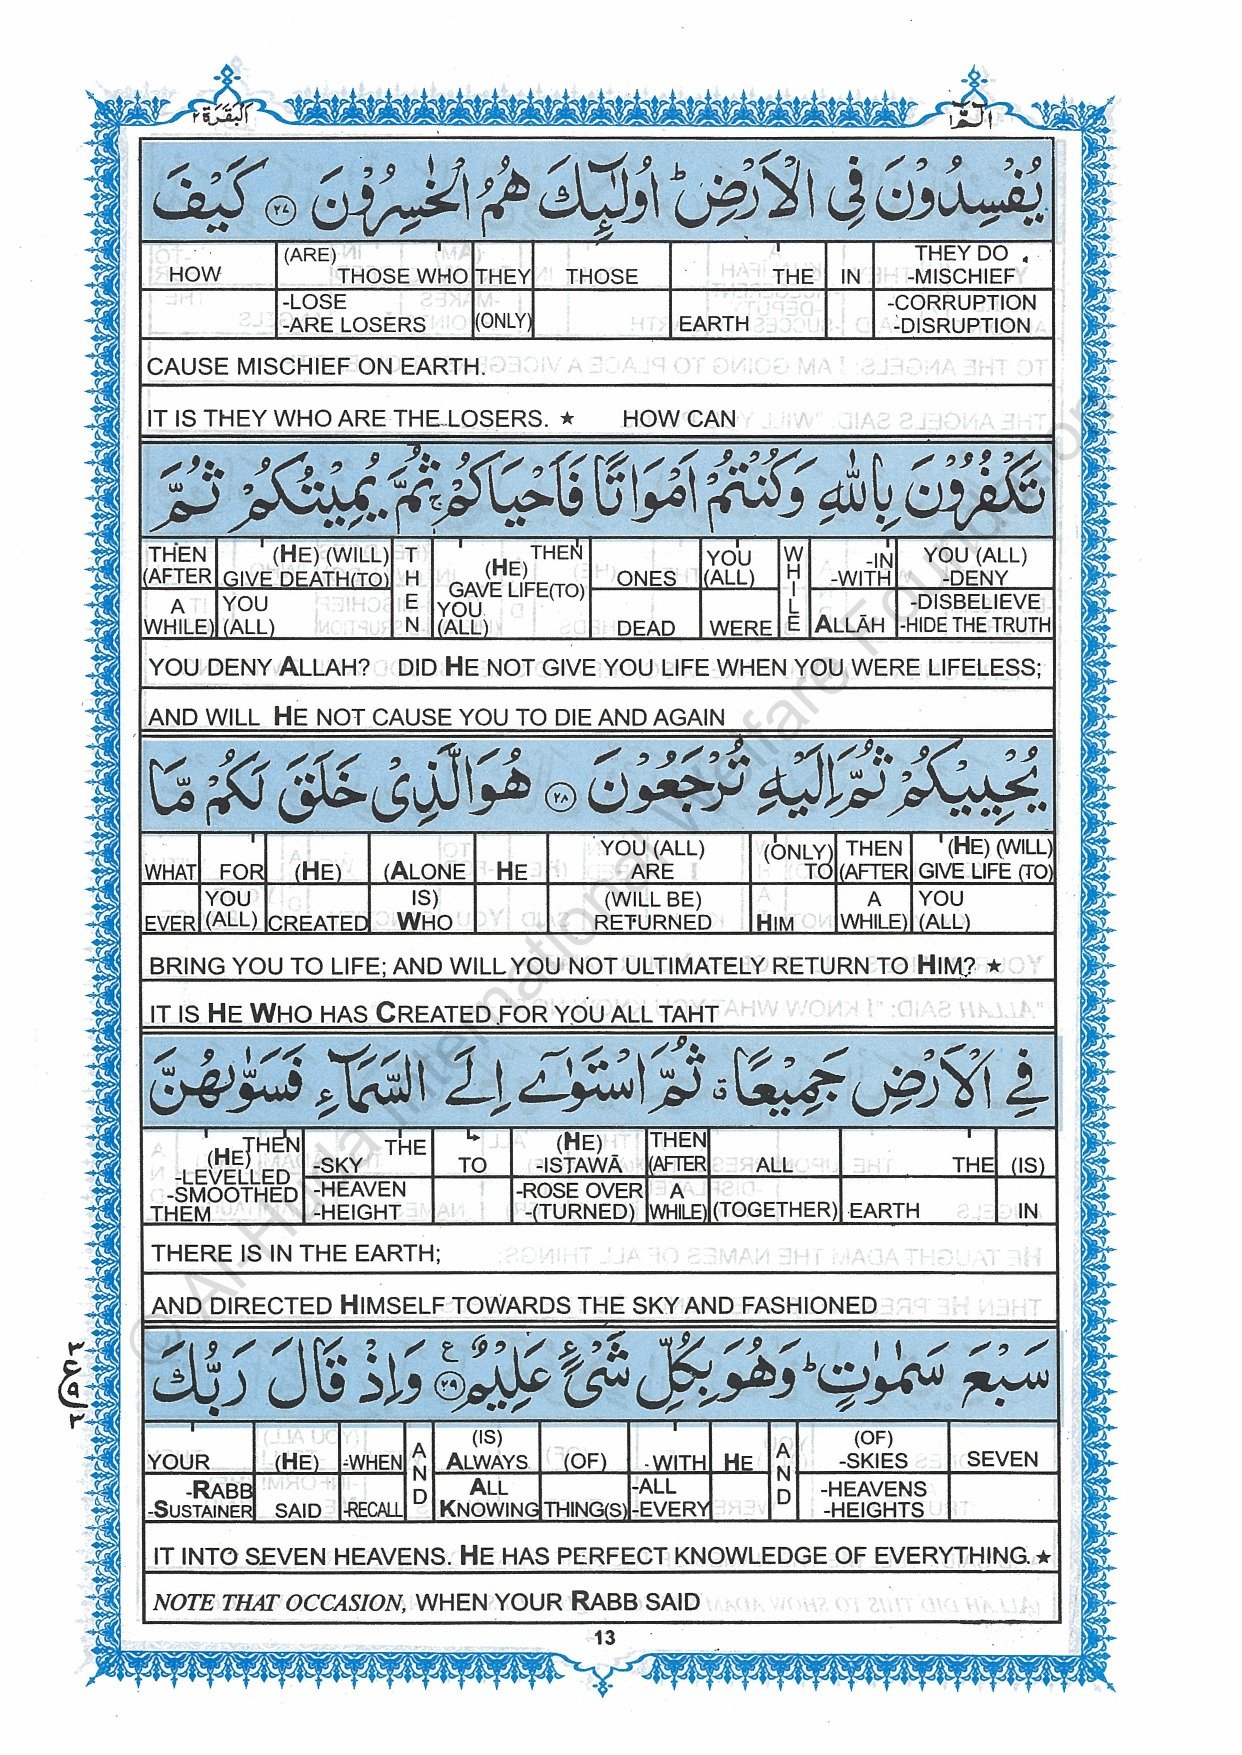 البقرة ٢
الٓمّٓ ١
يُفْسِدُوْنَ فِي الْاَرْضِ ؕ اُولٰٓئِكَ هُمُ الْخٰسِرُوْنَ ۝٢٧ كَيْفَ
(ARE) THEY DO
HOW THOSE WHO THEY THOSE THE IN -MISCHIEF
-LOSE -CORRUPTION
-ARE LOSERS (ONLY) EARTH -DISRUPTION
CAUSE MISCHIEF ON EARTH.
IT IS THEY WHO ARE THE LOSERS. ★ HOW CAN
تَكْفُرُوْنَ بِاللّٰهِ وَكُنْتُمْ اَمْوَاتًا فَاَحْيَاكُمْ ۚ ثُمَّ يُمِيْتُكُمْ ثُمَّ
THEN (HE) (WILL) THEN THEN YOU WHILE -IN YOU (ALL)
(AFTER GIVE DEATH(TO) (HE) GAVE LIFE(TO) ONES (ALL) -WITH -DENY
A YOU YOU -DISBELIEVE
WHILE) (ALL) (ALL) DEAD WERE ALLĀH -HIDE THE TRUTH
YOU DENY ALLAH? DID HE NOT GIVE YOU LIFE WHEN YOU WERE LIFELESS;
AND WILL HE NOT CAUSE YOU TO DIE AND AGAIN
يُحْيِيْكُمْ ثُمَّ اِلَيْهِ تُرْجَعُوْنَ ۝٢٨ هُوَ الَّذِيْ خَلَقَ لَكُمْ مَّا
YOU (ALL) (ONLY) THEN (HE) (WILL)
WHAT FOR (HE) (ALONE HE ARE TO (AFTER GIVE LIFE (TO)
YOU IS) (WILL BE) A YOU
EVER (ALL) CREATED WHO RETURNED HIM WHILE) (ALL)
BRING YOU TO LIFE; AND WILL YOU NOT ULTIMATELY RETURN TO HIM? ★
IT IS HE WHO HAS CREATED FOR YOU ALL TAHT
فِي الْاَرْضِ جَمِيْعًا ۗ ثُمَّ اسْتَوٰٓى اِلَى السَّمَآءِ فَسَوّٰىهُنَّ
THEN THE (HE) THEN
(HE) -LEVELLED -SKY TO -ISTAWĀ (AFTER ALL THE (IS)
-SMOOTHED -HEAVEN -ROSE OVER A
THEM -HEIGHT -(TURNED) WHILE) (TOGETHER) EARTH IN
THERE IS IN THE EARTH;
AND DIRECTED HIMSELF TOWARDS THE SKY AND FASHIONED
سَبْعَ سَمٰوٰتٍ ؕ وَهُوَ بِكُلِّ شَيْءٍ عَلِيْمٌ ۝٢٩ ع وَاِذْ قَالَ رَبُّكَ
(IS) (OF)
YOUR (HE) -WHEN AND ALWAYS (OF) -WITH HE AND -SKIES SEVEN
-RABB ALL -ALL -HEAVENS
-SUSTAINER SAID -RECALL KNOWING THING(S) -EVERY -HEIGHTS
IT INTO SEVEN HEAVENS. HE HAS PERFECT KNOWLEDGE OF EVERYTHING. ★
NOTE THAT OCCASION, WHEN YOUR RABB SAID
13
© Al-Huda International Welfare Foundation